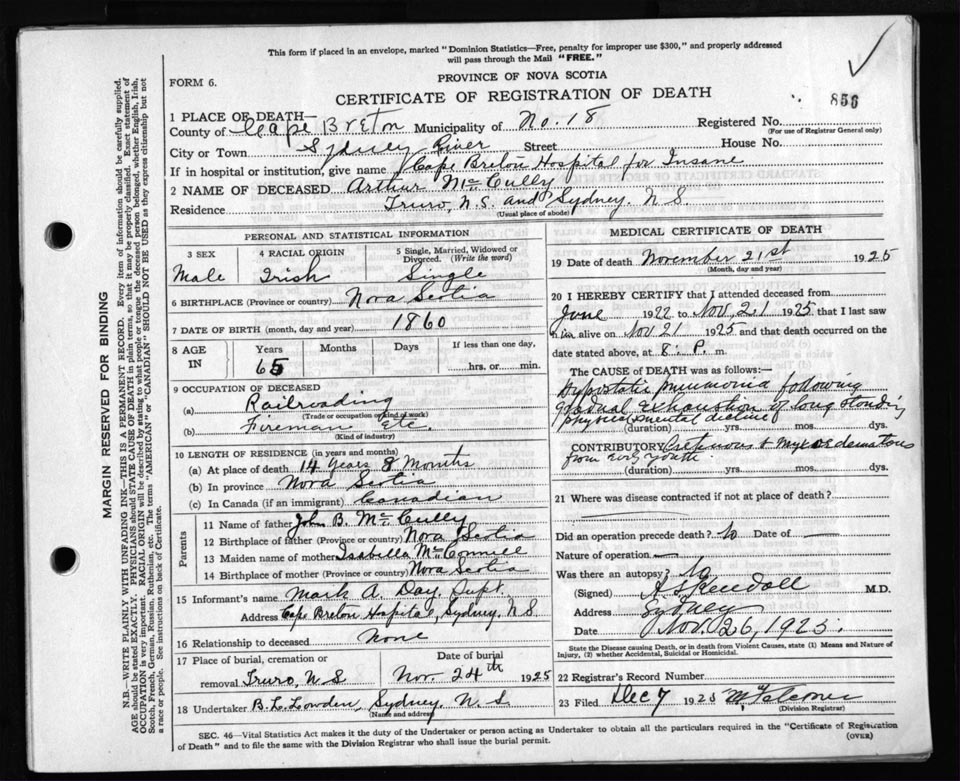 This form if placed in an envelope, marked "Dominion Statistics—Free, penalty for improper use $300," and properly addressed
will pass through the Mail "FREE."
FORM 6.
PROVINCE OF NOVA SCOTIA
CERTIFICATE OF REGISTRATION OF DEATH
856
1 PLACE OF DEATH—
County of Cape Breton Municipality of No. 18 Registered No.
(For use of Registrar General only)
City or Town Sydney River Street House No.
If in hospital or institution, give name Cape Breton Hospital for Insane
2 NAME OF DECEASED Arthur McCully
Residence Truro, N.S. and Sydney. N.S.
(Usual place of abode)
PERSONAL AND STATISTICAL INFORMATION
3 SEX 4 RACIAL ORIGIN 5 Single, Married, Widowed or Divorced. (Write the word)
Male Irish Single
6 BIRTHPLACE (Province or country) Nova Scotia
7 DATE OF BIRTH (month, day and year) 1860
8 AGE IN Years Months Days If less than one day,
65 hrs. or min.
9 OCCUPATION OF DECEASED
(a) Railroading
(Trade or occupation or kind of work)
(b) Fireman Etc.
(Kind of industry)
10 LENGTH OF RESIDENCE (in years and months)
(a) At place of death 14 years 8 Months
(b) In province Nova Scotia
(c) In Canada (if an immigrant) Canadian
Parents
11 Name of father John B. McCully
12 Birthplace of father (Province or country) Nova Scotia
13 Maiden name of mother Isabella McConnell
14 Birthplace of mother (Province or country) Nova Scotia
15 Informant's name Mark A. Day, Supt.
Address Cape Breton Hospital, Sydney, N.S
16 Relationship to deceased None
17 Place of burial, cremation or removal Truro, N S
Date of burial Nov. 24th 1925
18 Undertaker B. L. Lowden, Sydney, N. S.
(Name and address)
MEDICAL CERTIFICATE OF DEATH
19 Date of death November 21st 1925
(Month, day and year)
20 I HEREBY CERTIFY that I attended deceased from
June 1922 to Nov. 21 1925, that I last saw
him alive on Nov 21 1925 and that death occurred on
date stated above, at 8: P. m.
The CAUSE of DEATH was as follows:—
Hypostatic pneumonia following
gradual exhaustion of long standing
physical & mental decline
(duration) yrs. mos. dys.
CONTRIBUTORY Cretinous & Myxoedematous
from early youth.
(duration) yrs. mos. dys.
21 Where was disease contracted if not at place of death?
Did an operation precede death? no Date of —
Nature of operation —
Was there an autopsy? no
(Signed) Kendall M.D.
Address Sydney
Date Nov. 26, 1925.
State the Disease causing Death, or in death from Violent Causes, state (1) Means and Nature of
Injury, (2) whether Accidental, Suicidal or Homicidal.
22 Registrar's Record Number
23 Filed Dec 7 1925
(Division Registrar)
SEC. 46—Vital Statistics Act makes it the duty of the Undertaker or person acting as Undertaker to obtain all the particulars required in the "Certificate of Registration
of Death" and to file the same with the Division Registrar who shall issue the burial permit.
(OVER)
MARGIN RESERVED FOR BINDING
N.B.—WRITE PLAINLY WITH UNFADING INK—THIS IS A PERMANENT RECORD. Every item of information should be carefully supplied.
AGE should be stated EXACTLY. PHYSICIANS should STATE CAUSE OF DEATH in plain terms, so that it may be properly classified. Exact statement of
OCCUPATION is very important. RACIAL ORIGIN will be described by stating to what people or tongue the deceased person belonged, whether English, Irish,
Scotch, French, German, Russian, Ruthenian, etc. The terms "AMERICAN" or "CANADIAN" SHOULD NOT BE USED as they express citizenship but not
a race or people. See instructions on back of Certificate.